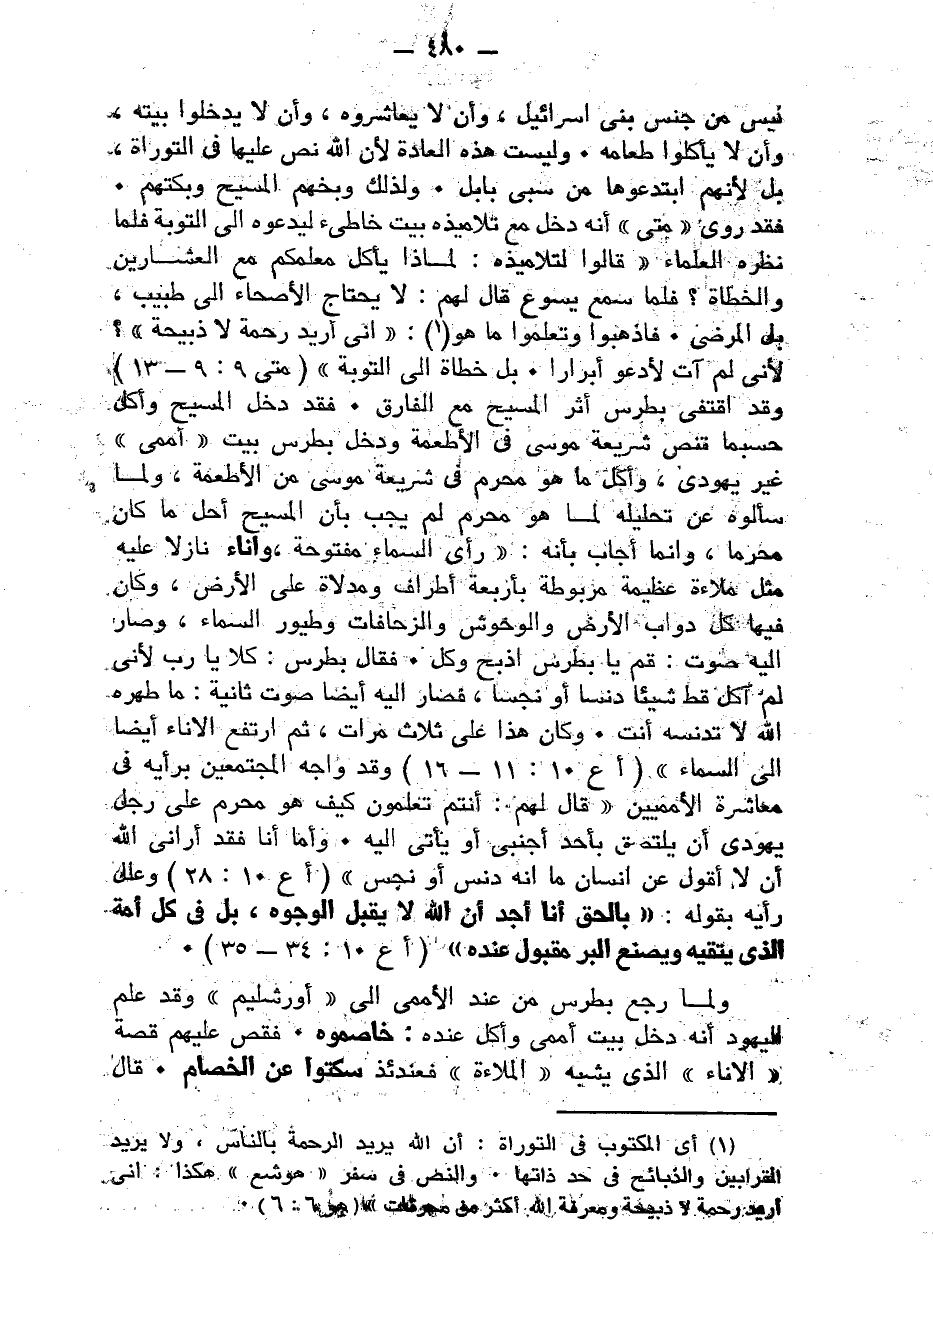 — ٤٨٠ —
ليس من جنس بنى اسرائيل ، وأن لا يعاشروه ، وأن لا يدخلوا بيته ،
وأن لا يأكلوا طعامه • وليست هذه العادة لأن الله نص عليها فى التوراة ،
بل لأنهم ابتدعوها من سبى بابل • ولذلك وبخهم المسيح وبكتهم •
فقد روى « متى » أنه دخل مع تلاميذه بيت خاطىء ليدعوه الى التوبة فلما
نظره العلماء « قالوا لتلاميذه : لمـاذا يأكل معلمكم مع العشـــارين
والخطاة ؟ فلما سمع يسوع قال لهم : لا يحتاج الأصحاء الى طبيب ،
بل المرضى • فاذهبوا وتعلموا ما هو(١) : « انى أريد رحمة لا ذبيحة » ؟
لأنى لم آت لأدعو أبرارا • بل خطاة الى التوبة » ( متى ٩ : ٩ — ١٣ )
وقد اقتفى بطرس أثر المسيح مع الفارق • فقد دخل المسيح وأكل
حسبما تنص شريعة موسى فى الأطعمة ودخل بطرس بيت « أممى »
غير يهودى ، وأكل ما هو محرم فى شريعة موسى من الأطعمة ، ولمـا
سألوه عن تحليله لمـا هو محرم لم يجب بأن المسيح أحل ما كان
محرما ، وانما أجاب بأنه : « رأى السماء مفتوحة ،واناء نازلا عليه
مثل ملاءة عظيمة مربوطة بأربعة أطراف ومدلاة على الأرض ، وكان
فيها كل دواب الأرض والوحوش والزحافات وطيور السماء ، وصار
اليه صوت : قم يا بطرس اذبح وكل • فقال بطرس : كلا يا رب لأنى
لم آكل قط شيئا دنسا أو نجسا ، فصار اليه أيضا صوت ثانية : ما طهره
الله لا تدنسه أنت • وكان هذا على ثلاث مرات ، ثم ارتفع الاناء أيضا
الى السماء » ( أ ع ١٠ : ١١ — ١٦ ) وقد واجه المجتمعين برأيه فى
معاشرة الأمميين « قال لهم : أنتم تعلمون كيف هو محرم على رجل
يهودى أن يلتصق بأحد أجنبى أو يأتى اليه • وأما أنا فقد أرانى الله
أن لا أقول عن انسان ما انه دنس أو نجس » ( أ ع ١٠ : ٢٨ ) وعلل
رأيه بقوله : « بالحق أنا أجد أن الله لا يقبل الوجوه ، بل فى كل أمة
الذى يتقيه ويصنع البر مقبول عنده » ( أ ع ١٠ : ٣٤ — ٣٥ ) •
ولمـا رجع بطرس من عند الأممى الى « أورشليم » وقد علم
اليهود أنه دخل بيت أممى وأكل عنده : خاصموه • فقص عليهم قصة
« الاناء » الذى يشبه « الملاءة » فعندئذ سكتوا عن الخصام • قال
(١) أى المكتوب فى التوراة : أن الله يريد الرحمة بالناس ، ولا يريد
القرابين والذبائح فى حد ذاتها • والنص فى سفر « هوشع » هكذا : انى
أريد رحمة لا ذبيحة ومعرفة الله أكثر من محرقات » ( هو ٦ : ٦ ) •